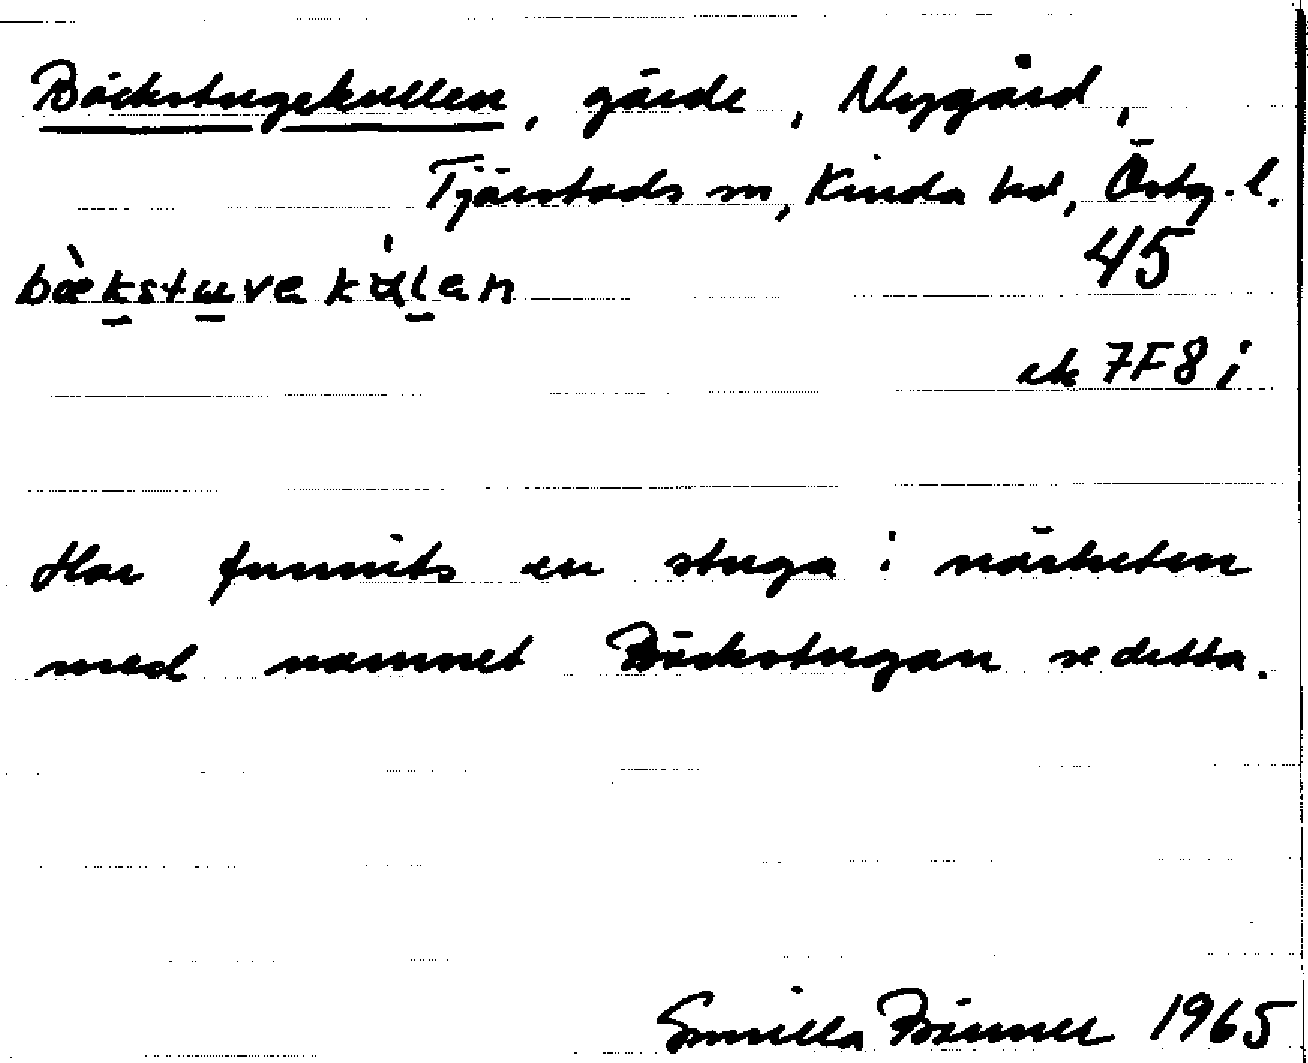 Bäckstugekullen, gärde, Nygård,
Tjärstads sn, Kinda hd, Östg. l.
bæ̀kstuvekálen
45
ek 7F8i
Har funnits en stuga i närheten
med namnet Bäckstugan se detta.
Gunilla 1965